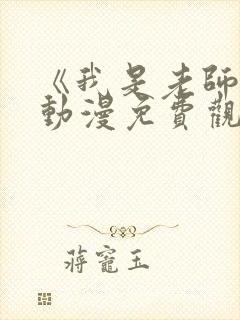 《我是老師
動漫免費觀
蔣寵玉